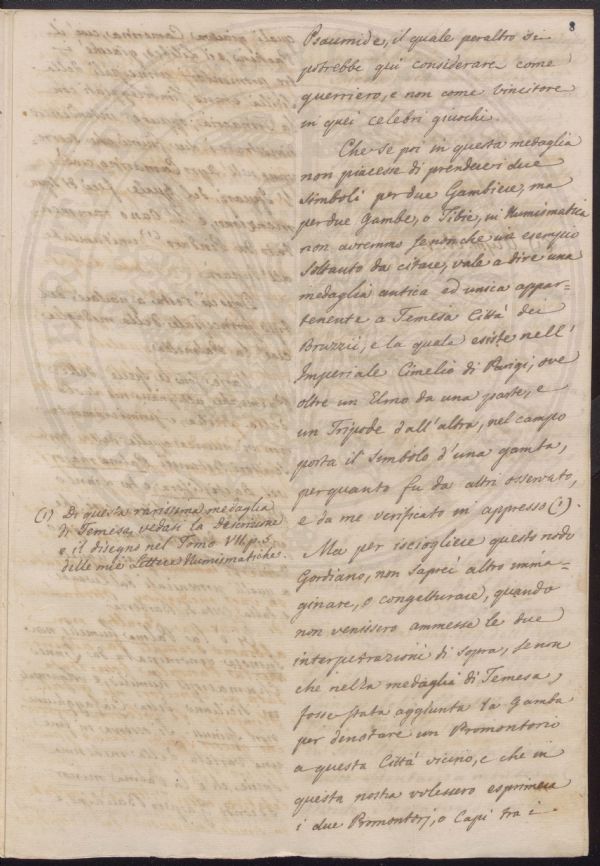 8
Psaumide, il quale peraltro si
potrebbe qui considerare come
guerriero, e non come vincitore
in quei celebri giuochi.
Che se poi in questa medaglia
non piacesse di prendere i due
Simboli per due Gambiere, ma
per due Gambe, o Tibie, in Numismatica
non avremmo senonche un esempio
soltanto da citare, vale a dire una
medaglia antica ed unica appar=
tenente a Temesa Città dei
Bruzzii, e la quale esiste nell'
Imperiale Cimelio di Parigi, ove
oltre un Elmo da una parte, e
un Tripode dall'altra, nel campo
porta il simbolo d'una gamba,
perquanto fu da altri osservato,
e da me verificato in appresso (1).
Ma per isciogliere questo nodo
Gordiano, non saprei altro imma=
ginare, o congetturare, quando
non venissero ammesse le due
interpetrazioni di sopra, se non
che nella medaglia di Temesa,
fosse stata aggiunta la Gamba
per denotare un Promontorio
a questa Città vicino, e che in
questa nostra volessero esprimere
i due Promontorj, o Capi tra i
(1) Di questa rarissima medaglia
di Temesa, vedasi la descrizione
e il disegno nel Tomo VII. p. 5.
delle mie Lettere Numismatiche.